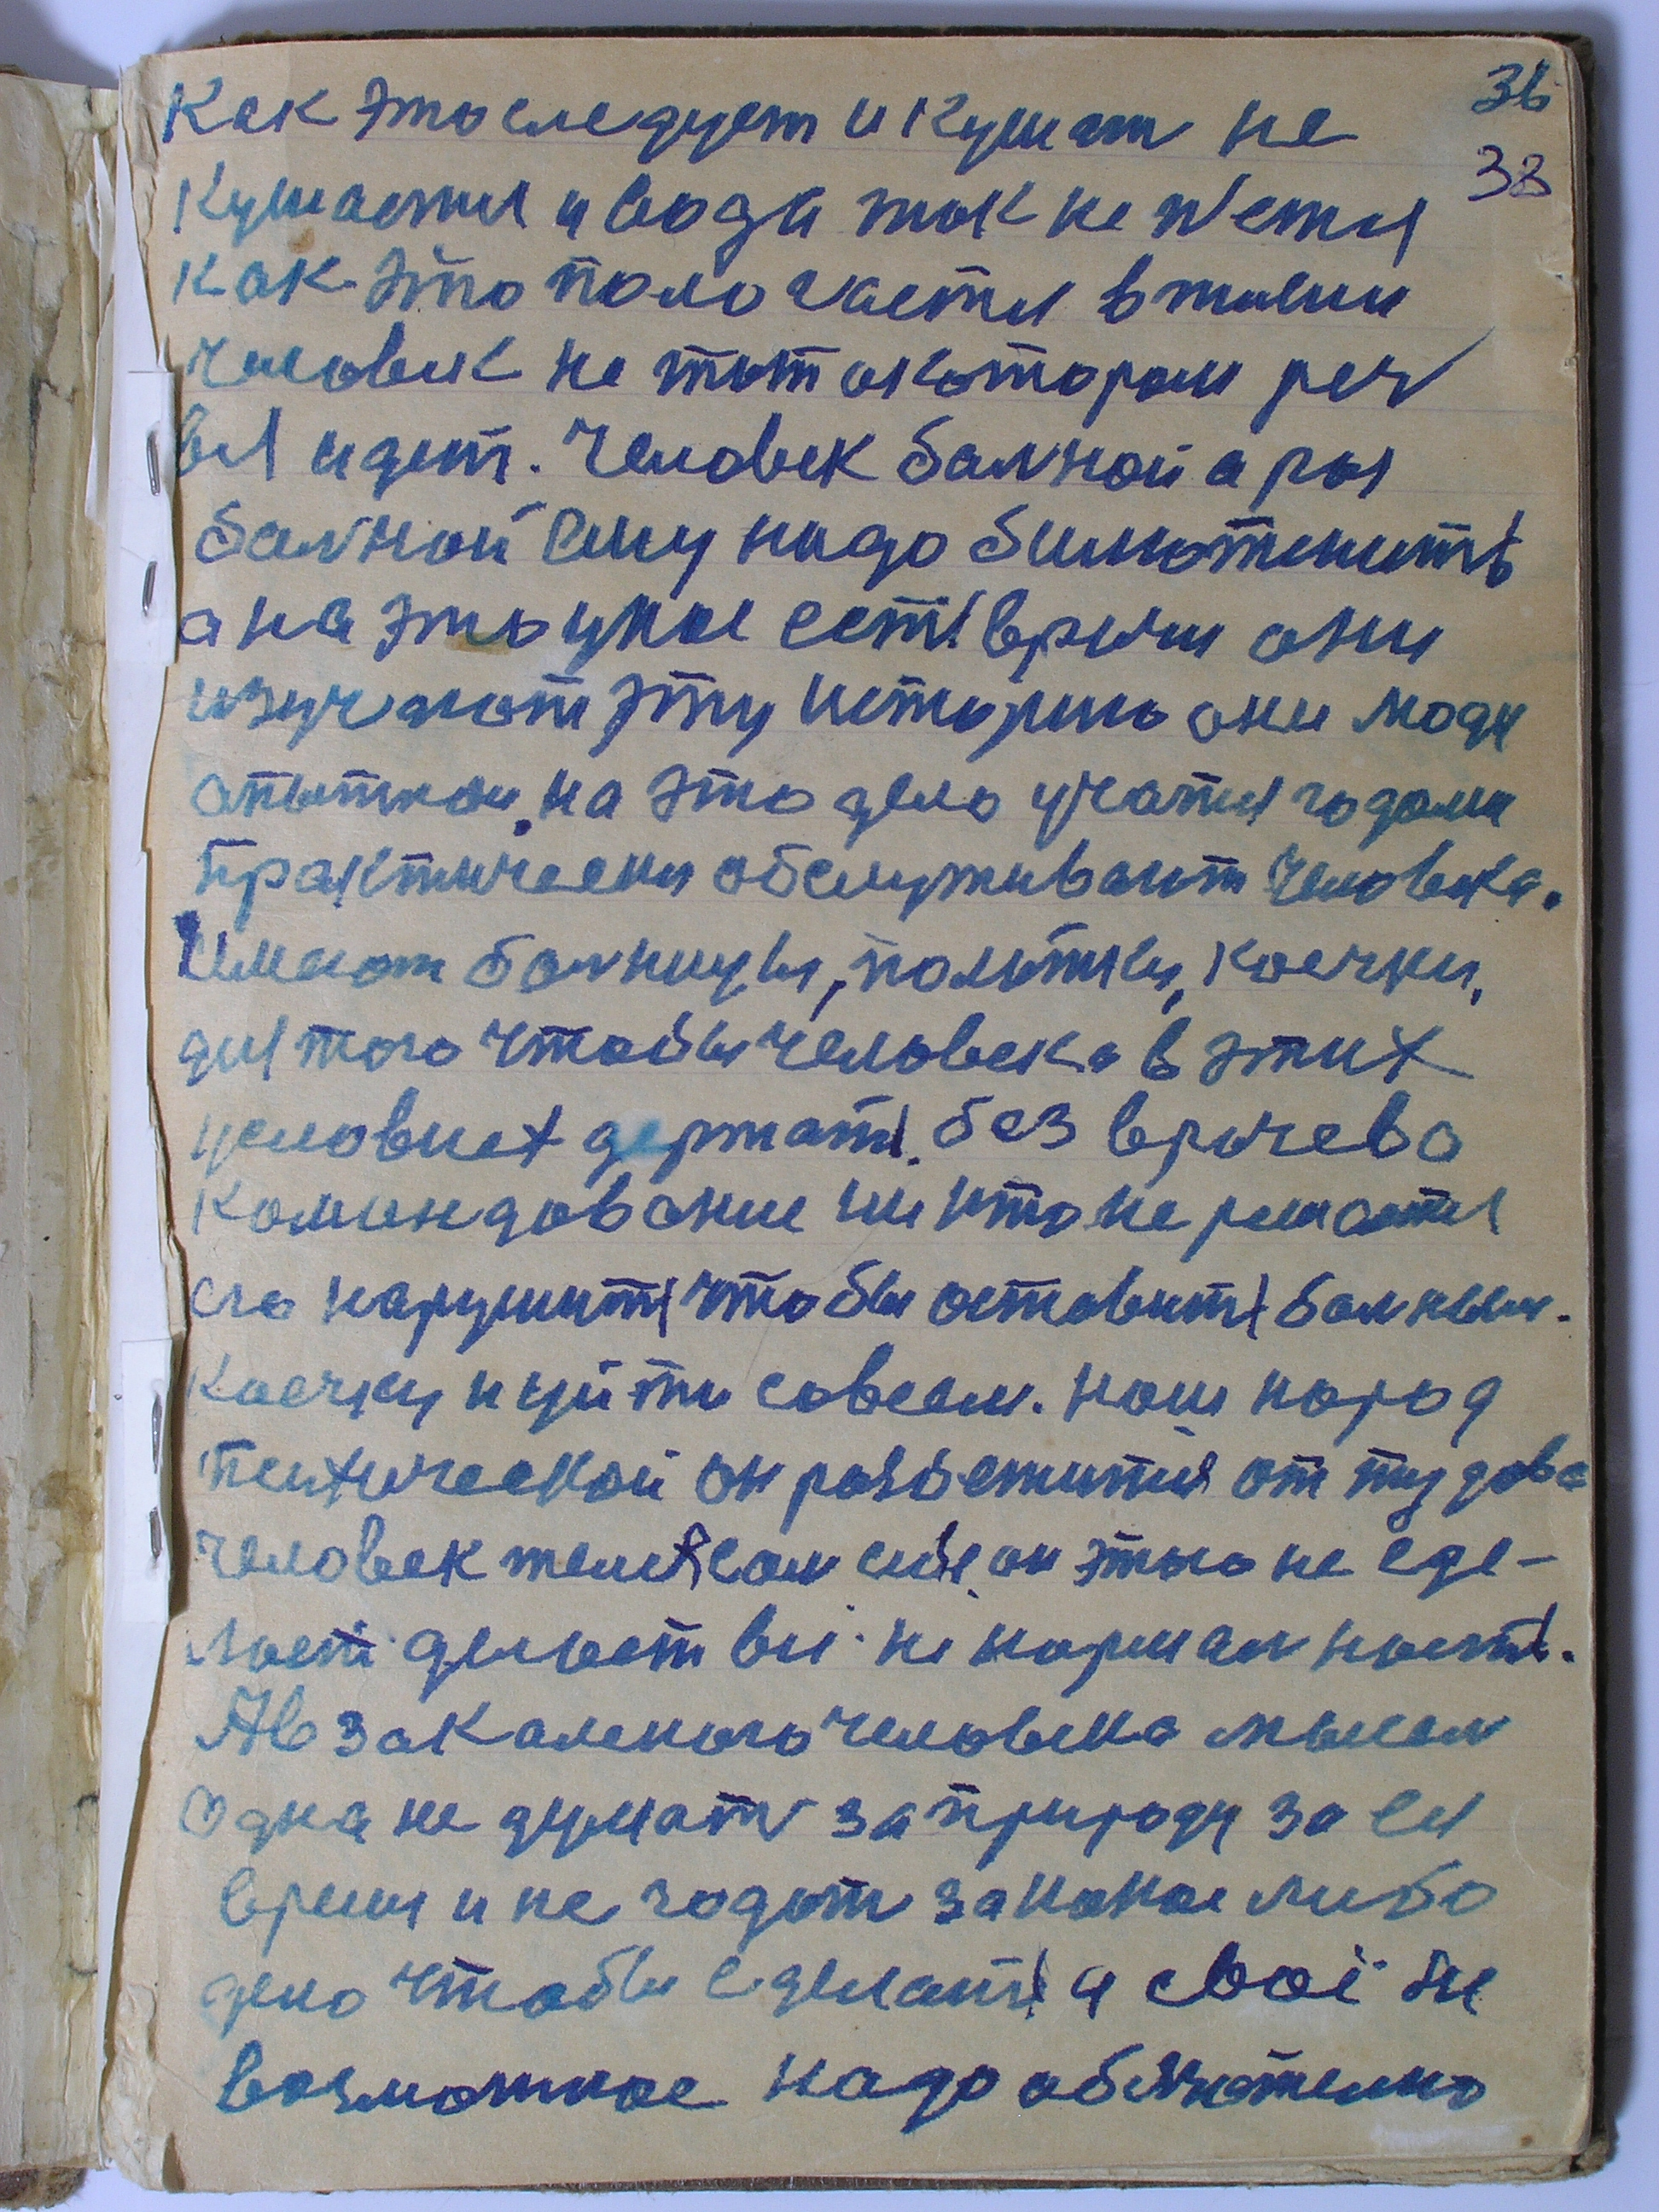 36
Как это следует и кушат не
38
кушается и вода так не пьется
как это пологается в жизни
человек не тот о котором реч
вся идет. Человек балной а раз
балной ему надо биллютенить
а на это уное есть врачи они
изучяют эту историю они люди
опытнои, на это дело учатся годами
практически обслуживают человека.
Имеют балницы, полаты, коечки,
для того чтобы человека в этих
условиях держать. без врачево
командование ни кто не решается
его нарушить чтобы оставить балныи.
коечку и уйти совсем. наш народ
психической он разбежится от тудова
человек желея сам себя он этого не сде-
лает. делает всі. ні нормалность.
А в закаленого человека мысел
одна не думать за природу за ея
время и не годит за какое либо
дело чтобы сделать а своі ни
возможное надо обязателно